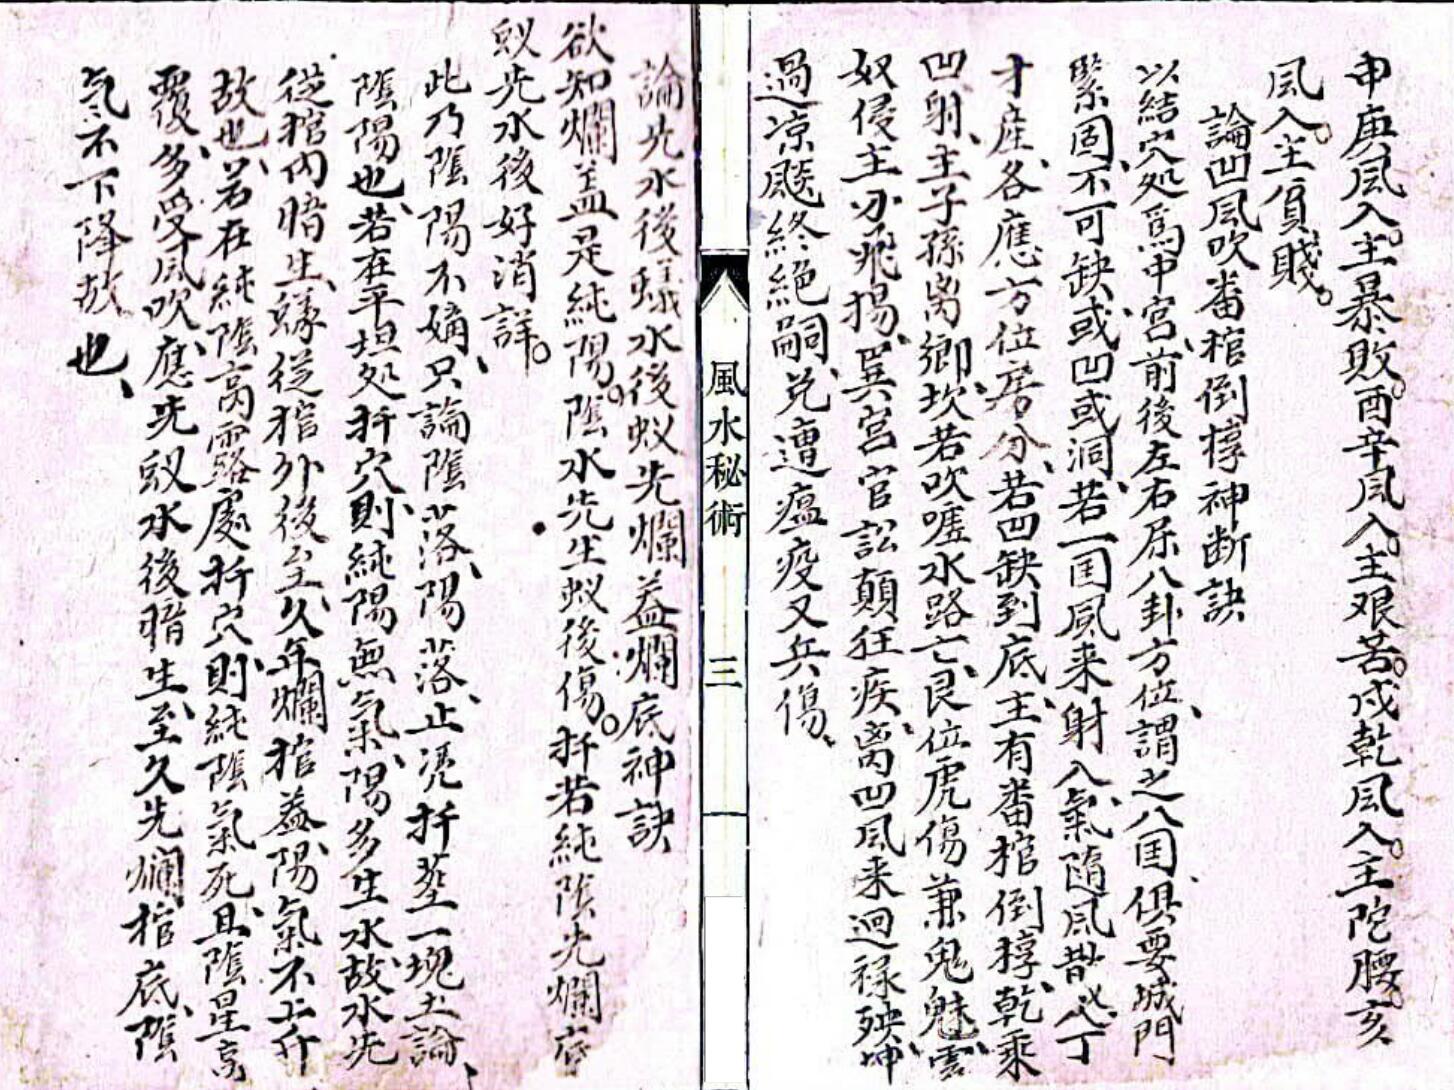 申庚風入主暴敗。酉辛風入主艰苦。戍乾風入主陀腰亥
風入主貧賤。
論凹風吹畨棺倒椁神断訣
以結穴処爲中宮、前後左右乐八卦方位、謂之八囯、俱要城門
緊固、不可缺或凹或洞、若一囯風来射入氣隨風散、必丁
才産、各應方位房分、若凹缺到底、主有畨棺倒椁、乾乘
凹射、主子孫离鄉、坎若吹嘘水路亡、艮位虎傷兼鬼魅、雲
奴侵主刅飛揚、巽宮官訟顛狂疾、离凹風来迴祿殃、坤
過凉颷終絕嗣、兌遭瘟疫又兵傷、
風水秘術
三
論先水後蟻水後蚁先爛益爛底神訣
欲知爛盖是純陽。隂水先生蚁後傷。扦若純隂先爛底
蚁先水後好消詳。
此乃隂陽不媾、只論隂落、陽落、止凴扦塟一塊土論、
隂陽也、若在平坦処扦穴則純陽無氣、陽多生水、故水先
從棺内暗生、蟓從棺外後至、久年爛棺益、陽氣不上升
故也、若在純隂高露處扦穴、則純隂氣死、且隂星高
覆、多受風吹、應先蚁水後暗生、至久先爛棺底、隂
氣不下降故也、